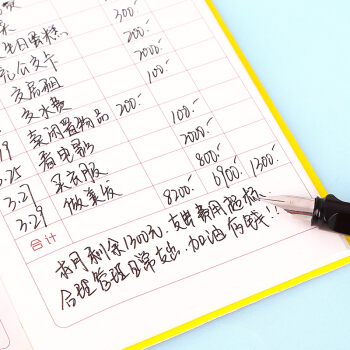 300.-
生日蛋糕 200.-
充公交卡 2000.-
交房租 100.-
交水费
200.-
看电影 100.-
3.25 买衣服 2000.-
3.27 做美发 800.-
3.29
合计 8200.- 6900.- 1300.-
本月剩余1300元.支出费用超标
合理管理日常支出.加油存钱!!